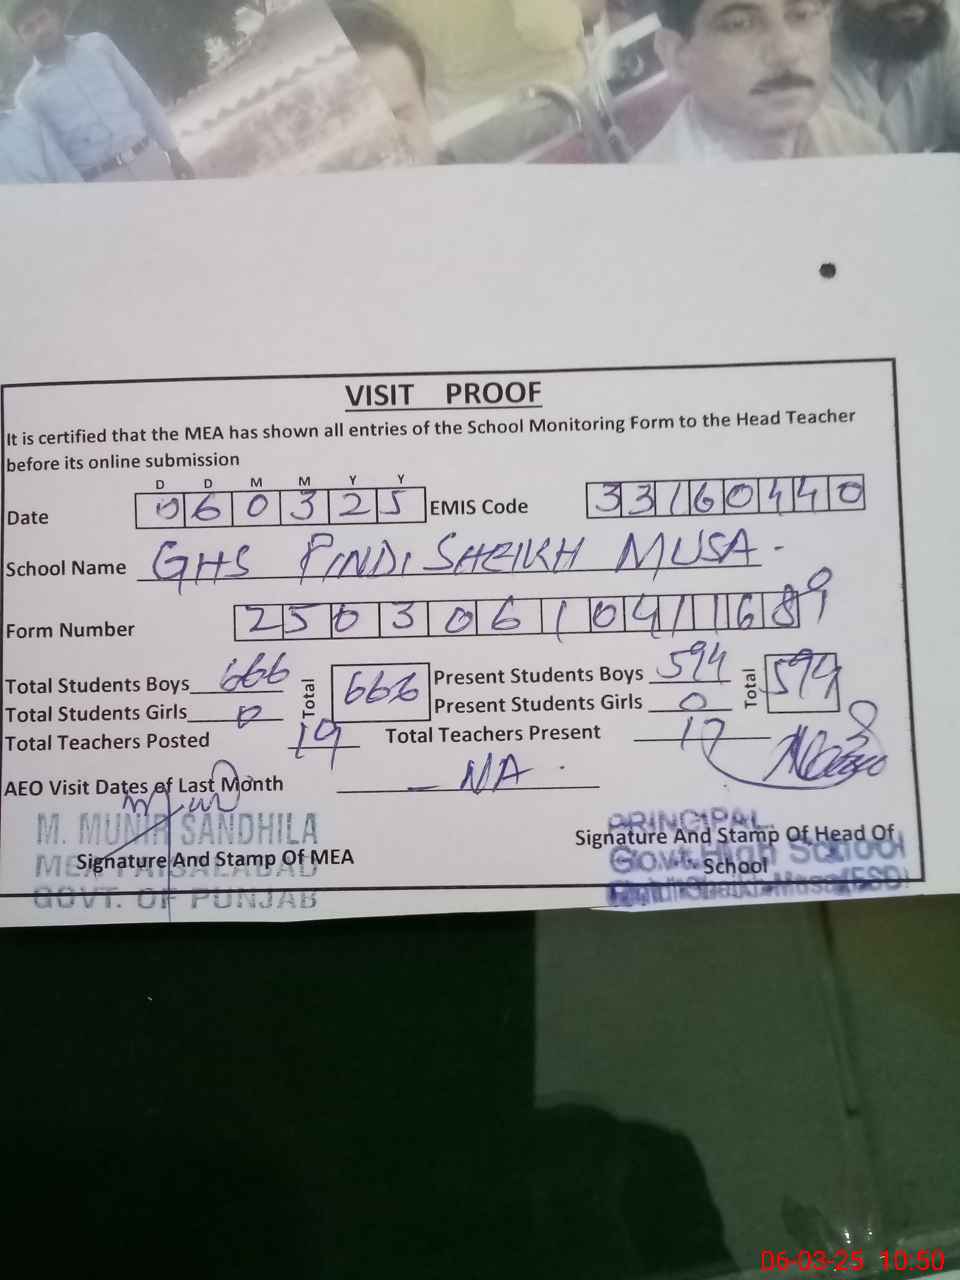 VISIT PROOF
It is certified that the MEA has shown all entries of the School Monitoring Form to the Head Teacher
before its online submission
D D M M Y Y
Date 060325 EMIS Code 33160440
School Name GHS PINDI SHEIKH MUSA -
Form Number 25030610411689
Total Students Boys 666 Total 666 Present Students Boys 594 Total 594
Total Students Girls 0 Present Students Girls 0
Total Teachers Posted 19 Total Teachers Present 17
AEO Visit Dates of Last Month NA
M. MUNIR SANDHILA
MEA FAISALABAD
GOVT. OF PUNJAB
Signature And Stamp Of MEA
PRINCIPAL
Govt. High School
Pindi Sheikh Musa (FSD)
Signature And Stamp Of Head Of
School
06-03-25 10:50